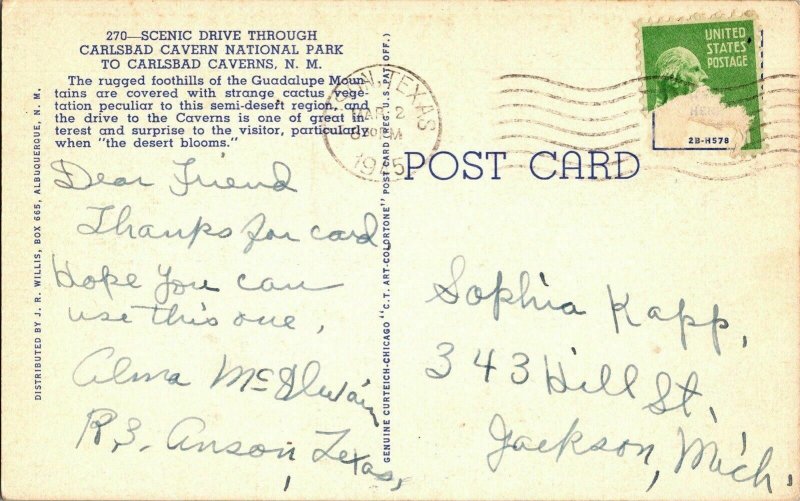 270—SCENIC DRIVE THROUGH
CARLSBAD CAVERN NATIONAL PARK
TO CARLSBAD CAVERNS, N. M.
The rugged foothills of the Guadalupe Moun-
tains are covered with strange cactus vege-
tation peculiar to this semi-desert region, and
the drive to the Caverns is one of great in-
terest and surprise to the visitor, particularly
when "the desert blooms."
Dear Friend
Thanks for card
Hope you can
use this one,
Alma McIlwain
R.3. Anson, Texas,
DISTRIBUTED BY J. R. WILLIS, BOX 665, ALBUQUERQUE, N. M.
GENUINE CURTEICH-CHICAGO "C.T. ART-COLORTONE" POST CARD (REG. U.S. PAT. OFF.)
TEXAS
MAR 2
POST CARD
UNITED
STATES
POSTAGE
2B-H578
Sophia Kapp,
343 Hill St,
Jackson, Mich,